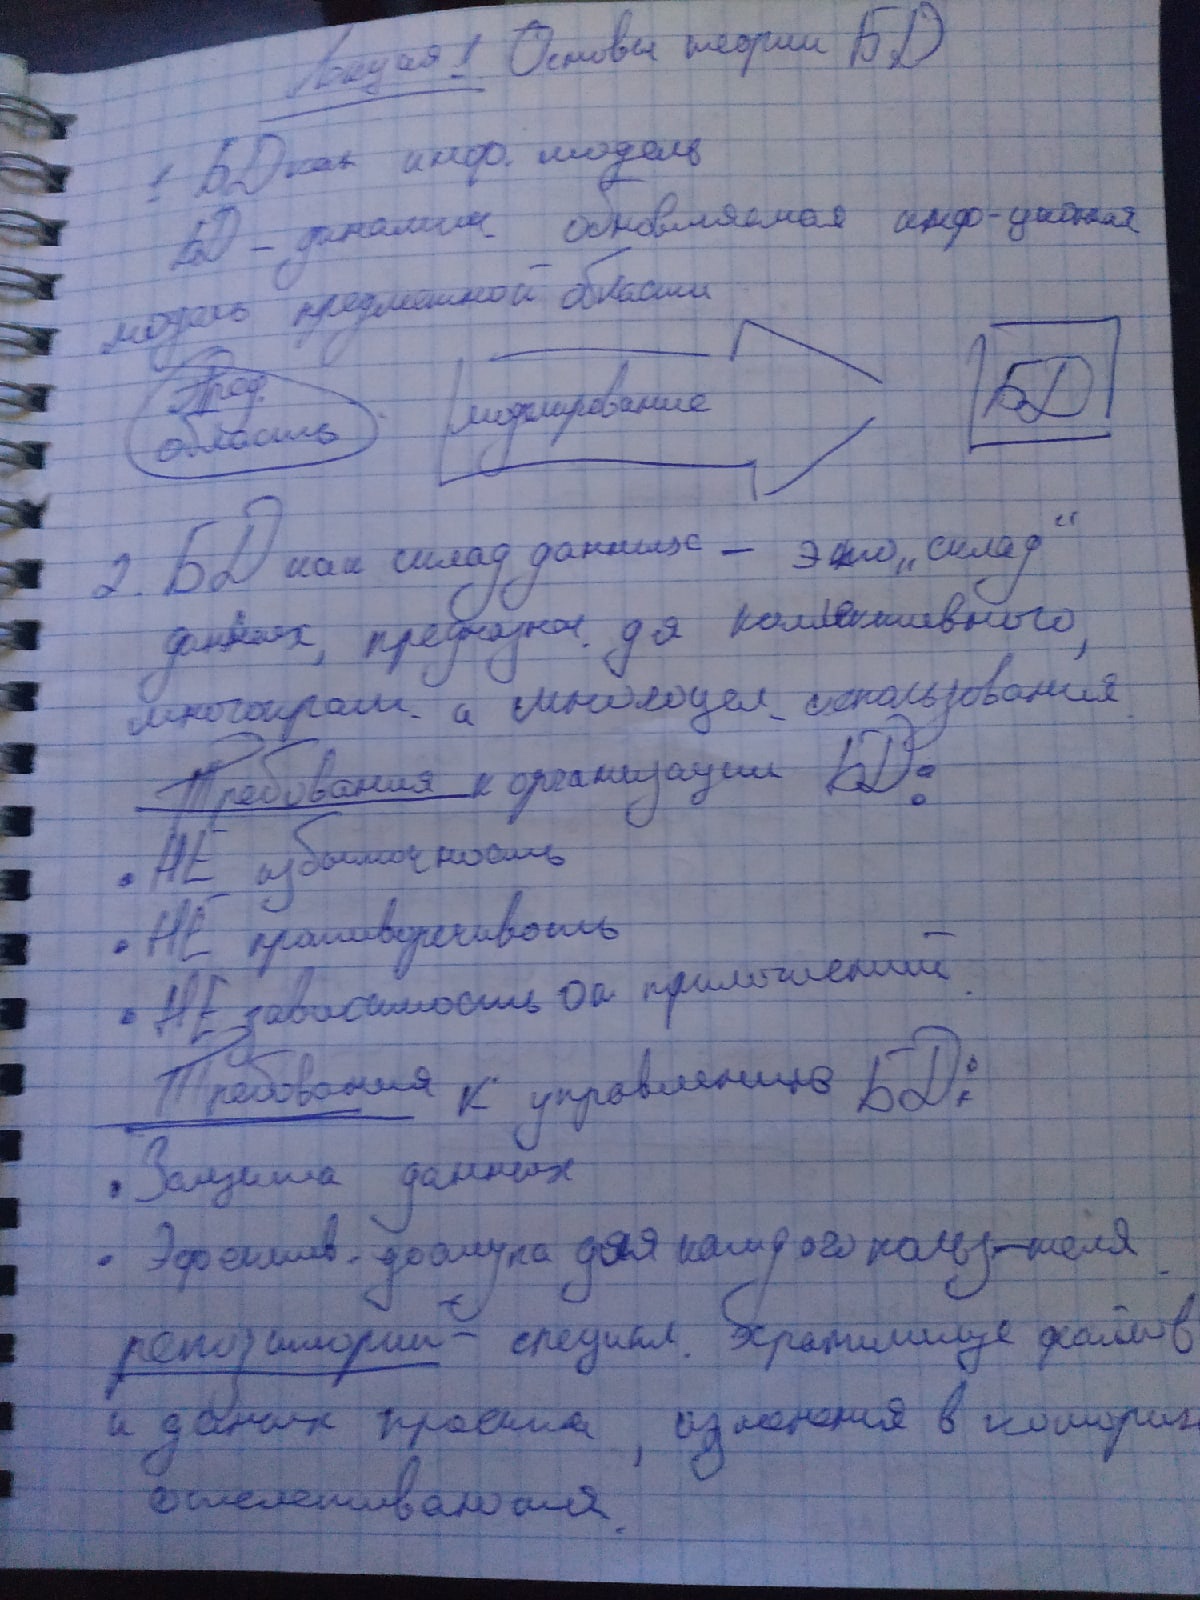 Лекция 1 Основы теории БД
1 БД как инф. модель
БД – динамич. обновляемая инф-ционная
модель предметной области
Пред.
область
моделирование
БД
2. БД как склад данных – это „склад“
данных, предназнач. дя коллективного,
многократ. и многоцел. использования.
Требования к организации БД:
• НЕ избыточность
• НЕ противоречивость
• НЕ зависимость от приложений.
Требования к управлению БД:
• Защита данных
• Эфектив. доступа для каждого польз-теля.
репозиторий – специал. хранилище файлов
и даных проекта, изменения в которых
отслеживаются.